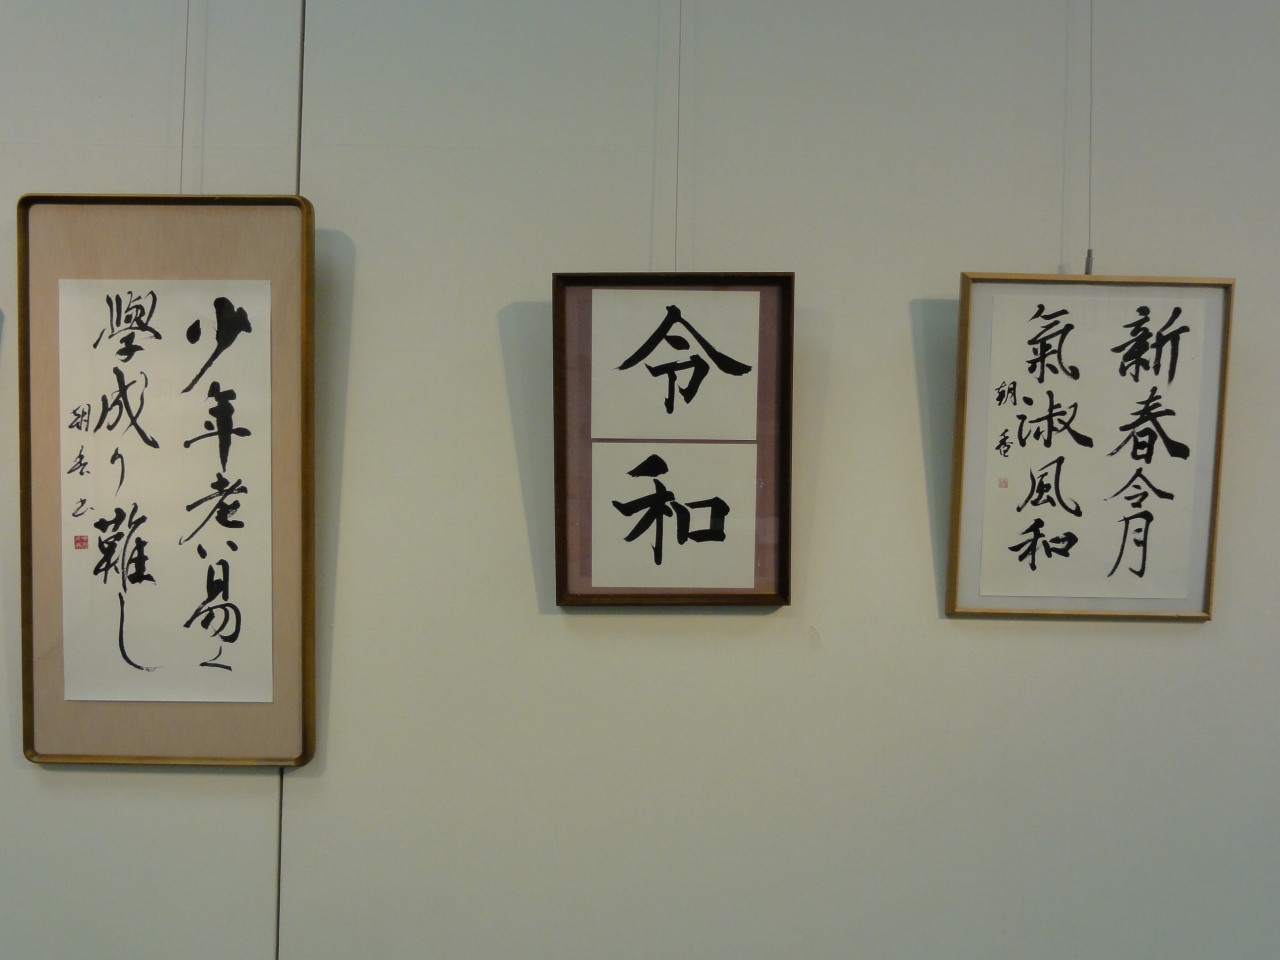 少年老い易く
學成り難し
朝香書
令
和
新春令月
氣淑風和
朝香